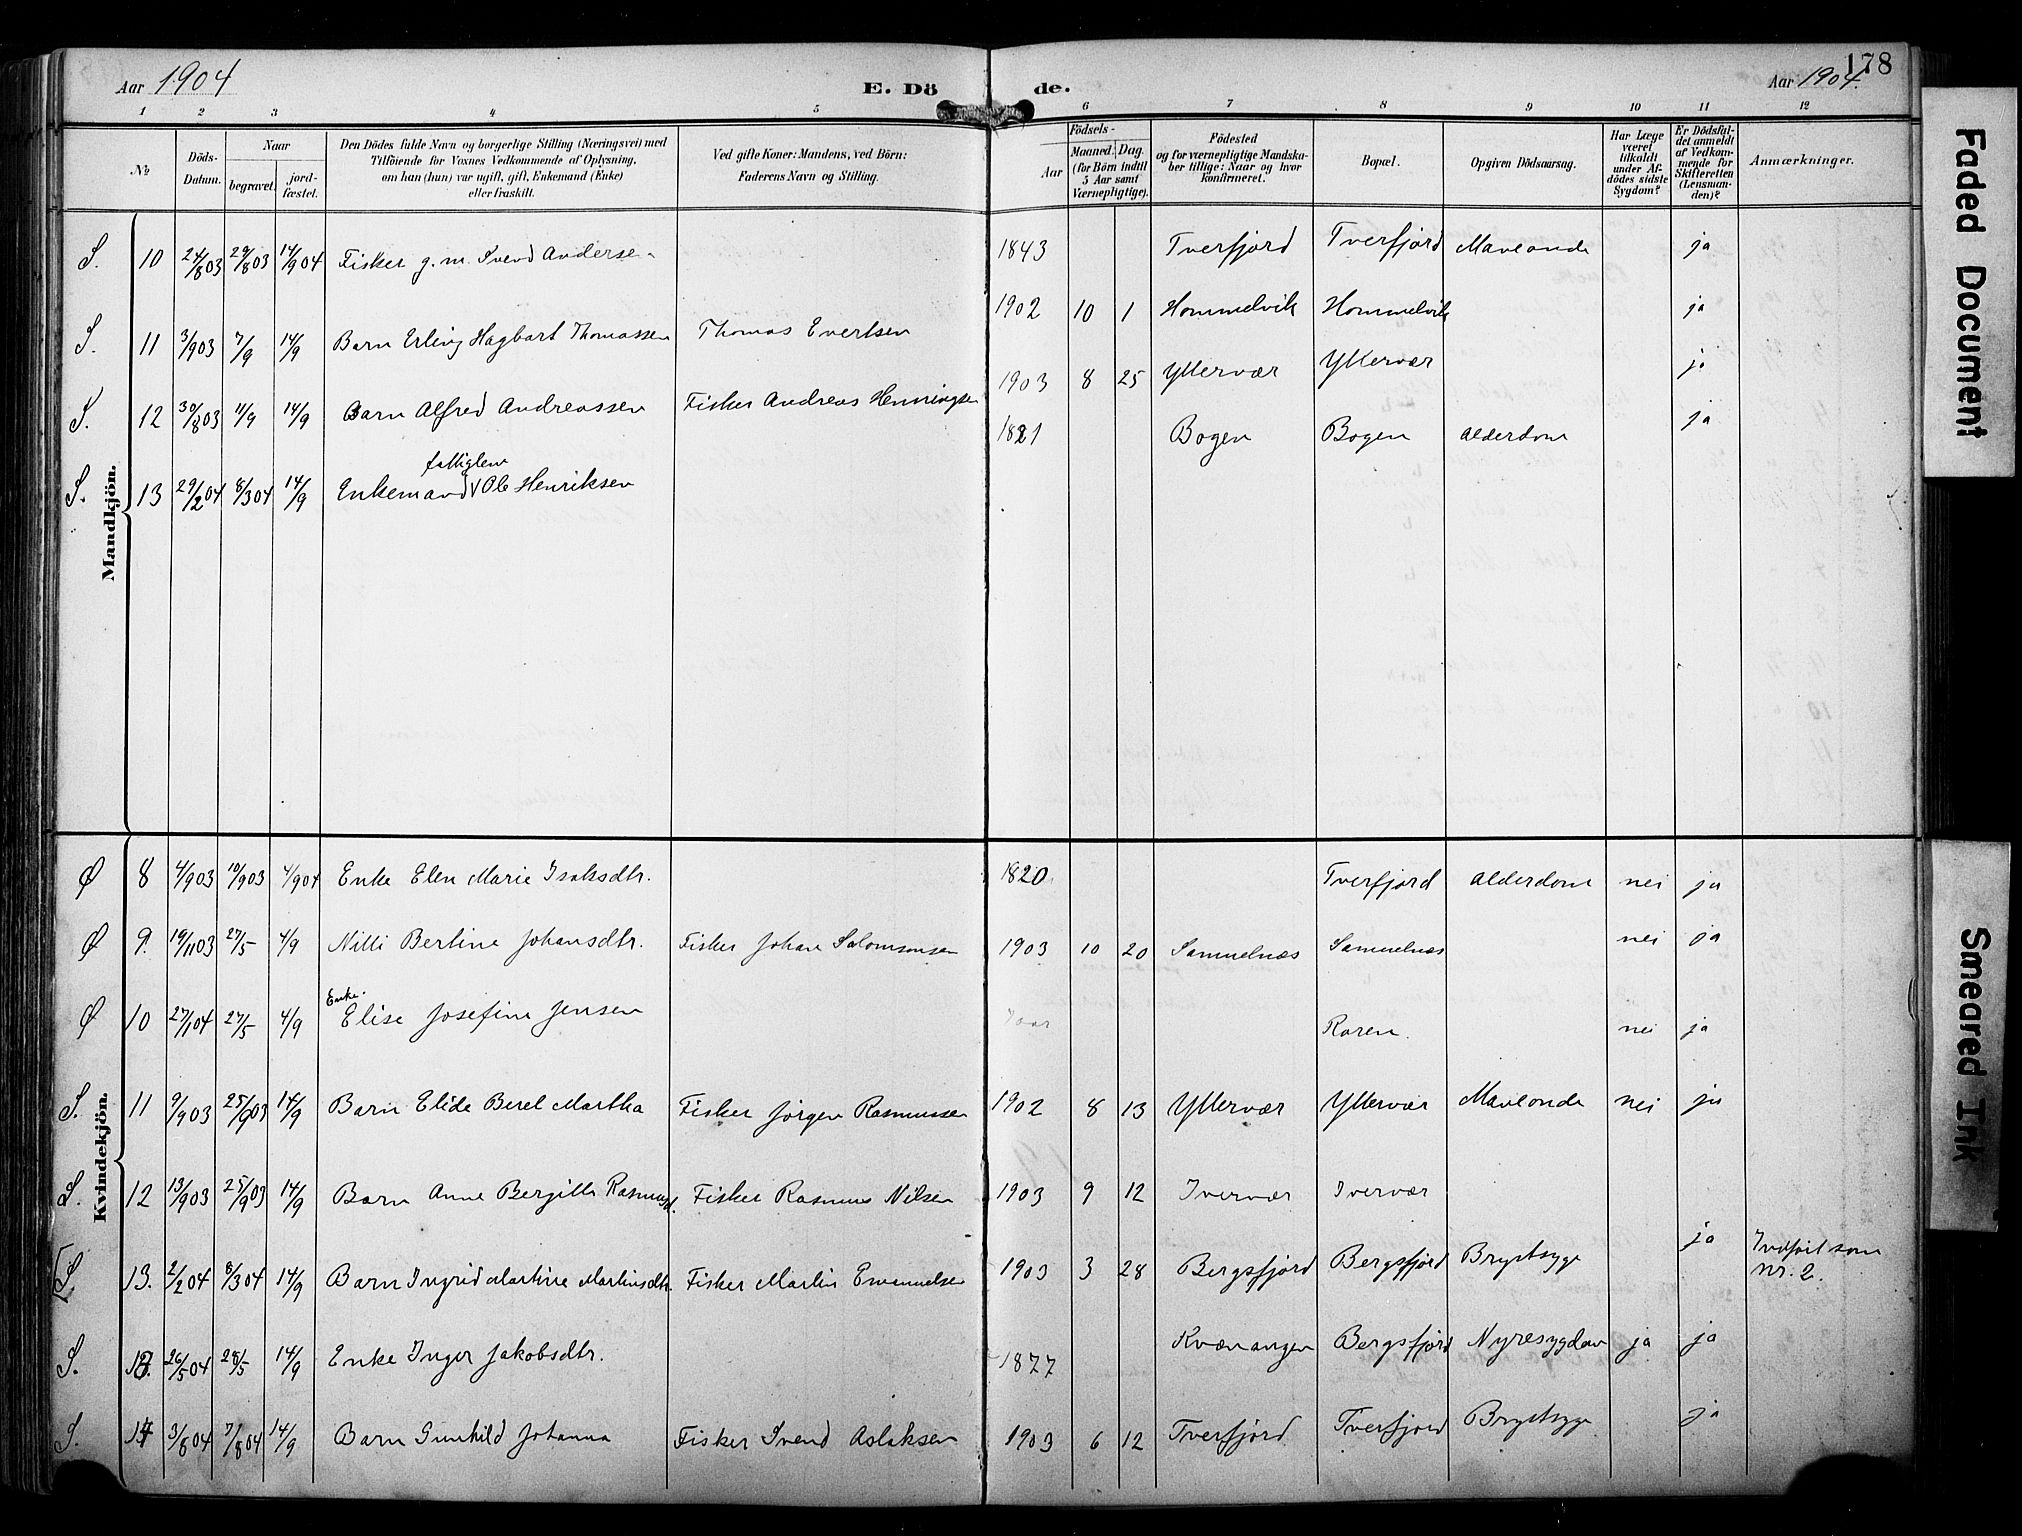 178
Aar 1904 E. Dö de. Aar 1904.
1 2 3 4 5 6 7 8 9 10 11 12
№
Döds-Datum.
Naar
begravet.
jord-fæstet.
Den Dödes fulde Navn og borgerlige Stilling (Næringsvei) med
Tilföiende for Voxnes Vedkommende af Oplysning,
om han (hun) var ugift, gift, Enkemand (Enke)
eller fraskilt.
Ved gifte Koner: Mandens, ved Börn:
Faderens Navn og Stilling.
Födsels-
Aar
Maaned. Dag.
(for Börn indtil
5 Aar samt
Værnepligtige).
Födested
og for værnepligtige Mandska-
ber tillige: Naar og hvor
konfirmeret.
Bopæl.
Opgiven Dödsaarsag.
Har Læge
været
tilkaldt
under Af-
dödes sidste
Sygdom?
Er Dödsfal-
det anmeldt
af Vedkom-
mende for
Skifteretten
(Lensman-
den)?
Anmærkninger.
Mandkjön.
S. 10 24/8 03 29/8 03 14/9 04 Fisker g. m. Svend Andersen 1843 Tverfjord Tverfjord Maveonde ja
S. 11 3/9 03 7/9 14/9 Barn Erling Hagbart Thomassen Thomas Evertsen 1902 10 1 Hommelvik Hommelvik ja
S. 12 30/8 03 11/9 14/9 Barn Alfred Andreassen Fisker Andreas Henningsen 1903 8 25 Yttervær Yttervær ja
fattiglem
S. 13 29/2 04 8/3 04 14/9 Enkemand Ole Henriksen 1821 Bogen Bogen Alderdom ja
Kvindekjön.
Ø 8 4/9 03 10/9 03 4/9 04 Enke Elen Marie Isaksdtr. 1820 Tverfjord Alderdom nei ja
Ø 9. 19/11 03 27/5 4/9 Nilli Bertine Johansdtr. Fisker Johan Salomonsen 1903 10 20 Samuelnæs Samuelnæs nei ja
Enke.
Ø 10 27/1 04 27/5 4/9 Elise Josefine Jensen Roren. nei ja
S. 11 9/9 03 25/9 03 14/9 Barn Elide Berel Martha Fisker Jørgen Rasmussen 1902 8 13 Yttervær Yttervær Maveonde nei ja
S. 12 13/9 03 25/9 03 14/9 Barn Anne Bergitte Rasmusd. Fisker Rasmus Nilsen 1903 9 12 Ivervær Ivervær
[S. 13. 2/2 04 8/3 04 14/9 Barn Ingrid Martine Martinsdtr. Fisker Martin Emanuelsen 1903 3 28 Bergsfjord Bergsfjord Brystsyge ja Indført som
nr. 2.
S. 13. 26/5 04 28/5 14/9 Enke Inger Jakobsdtr. 1827 Kvænangen Bergsfjord Nyresygdom ja ja
S. 14 3/8 04 7/8 04 14/9 Barn Gunhild Johanna Fisker Svend Aslaksen 1903 6 12 Tverfjord Tverfjord Brystsyge ja
Faded Document
Smeared Ink